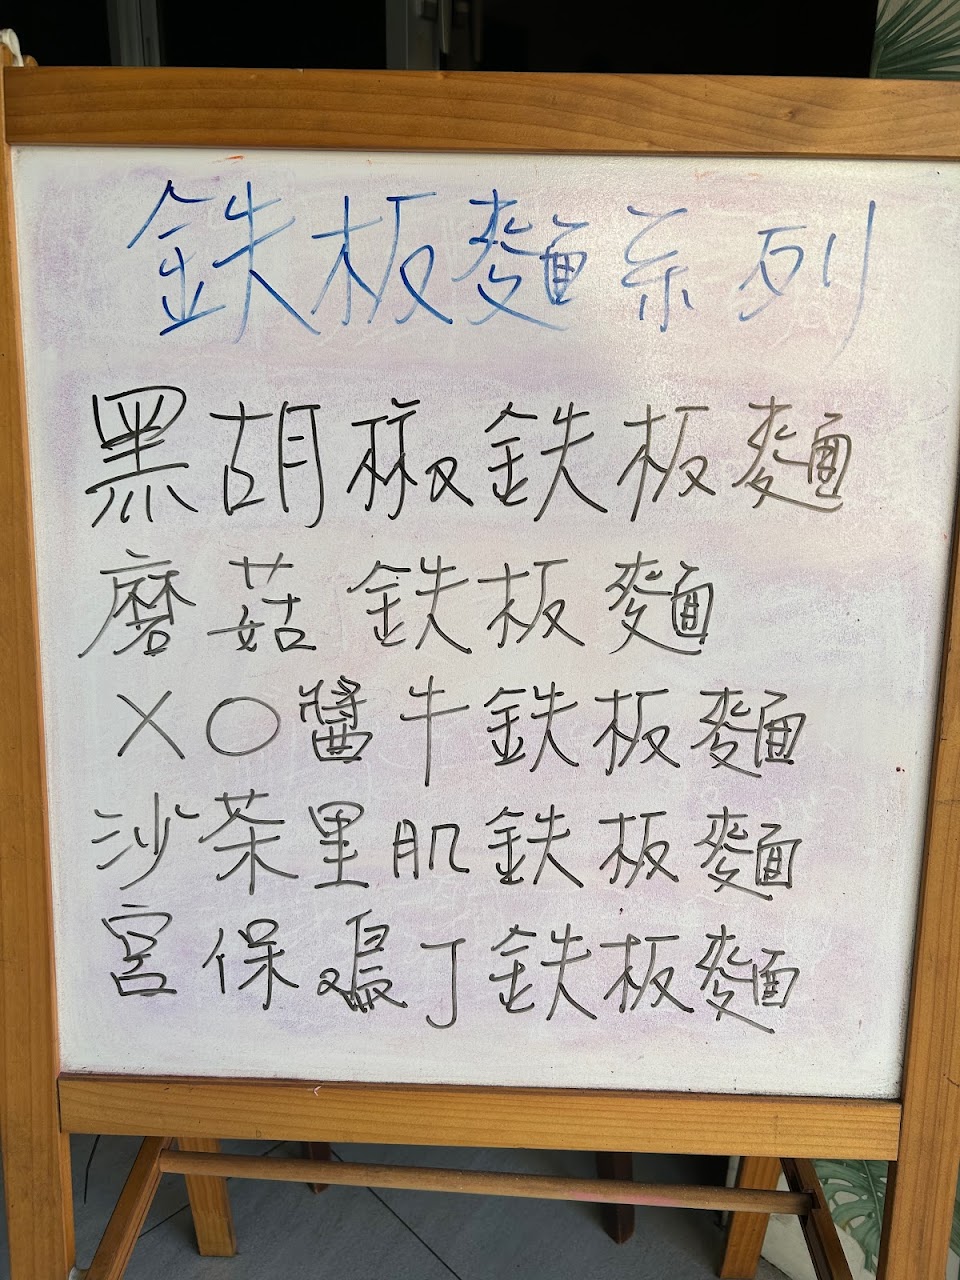 鉄板麵系列
黑胡椒鉄板麵
磨菇鉄板麵
XO醬牛鉄板麵
沙茶里肌鉄板麵
宮保鳮丁鉄板麵